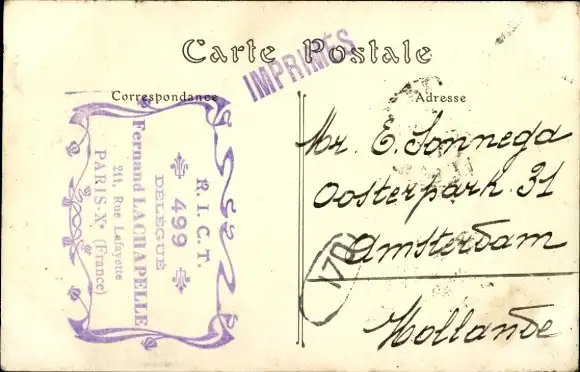 Carte Postale
IMPRIMÉS
Correspondance
Adresse
R. I. C. T.
DÉLÉGUÉ
499
Fernand LACHAPELLE
211, Rue Lafayette
PARIS-Xe (France)
Mr. E. Sonnega
Oosterpark 31
Amsterdam
170
Hollande